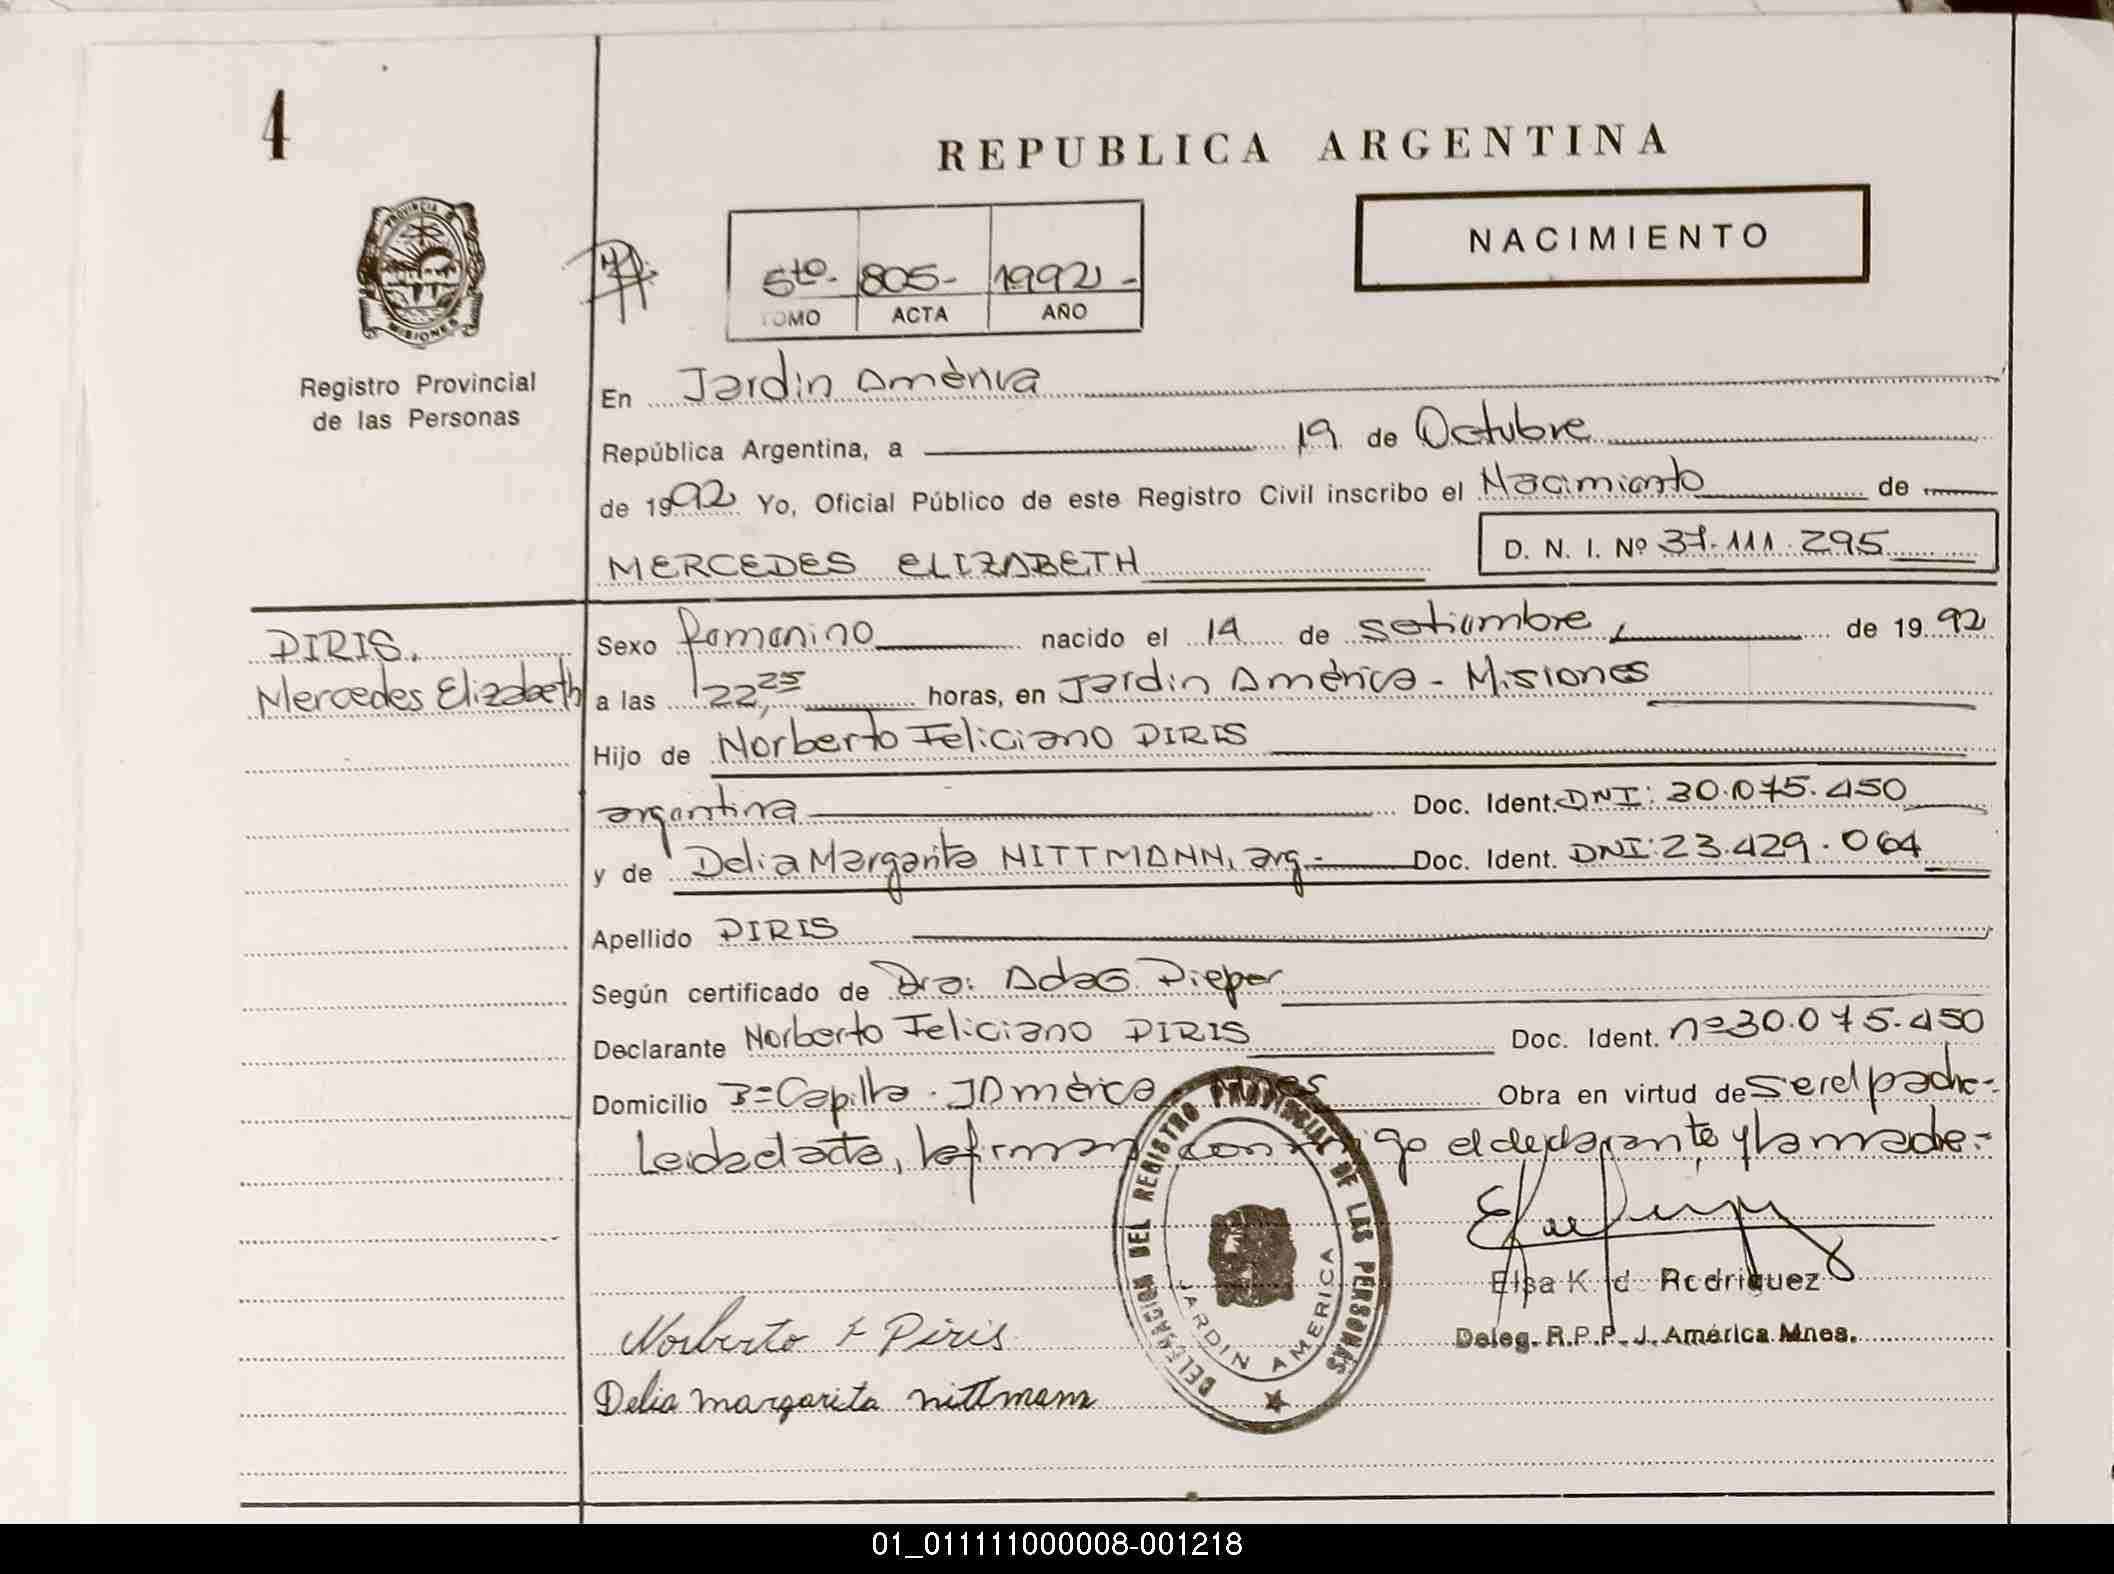 4
REPUBLICA ARGENTINA
NACIMIENTO
PROVINCIA D
MISIONES
5to. 805- 1992-
TOMO ACTA AÑO
Registro Provincial
de las Personas
En Jardín América
República Argentina, a 19 de Octubre
de 1992 Yo, Oficial Público de este Registro Civil inscribo el Nacimiento de
MERCEDES ELIZABETH D. N. I. Nº 37.111.295
PIRIS,
Mercedes Elizabeth
Sexo femenino nacido el 14 de setiembre, de 1992
a las 22,25 horas, en Jardín América - Misiones
Hijo de Norberto Feliciano PIRIS
argentina Doc. Ident. DNI: 30.075.450
y de Delia Margarita NITTMANN, arg.- Doc. Ident. DNI: 23.429.064
Apellido PIRIS
Según certificado de Dra: Ada G. Pieper
Declarante Norberto Feliciano PIRIS Doc. Ident. nº 30.075.450
Domicilio Bº Capilla. J América Mnes Obra en virtud de ser el padre-
Leida el acta, la firman conmigo el declarante y la madre.-
DELEGACION DEL REGISTRO PROVINCIAL DE LAS PERSONAS
JARDIN AMERICA
Elsa K. d Rodriguez
Deleg. R.P.P. J. América Mnes.
Norberto F Piris
Delia margarita nittmann
01_011111000008-001218